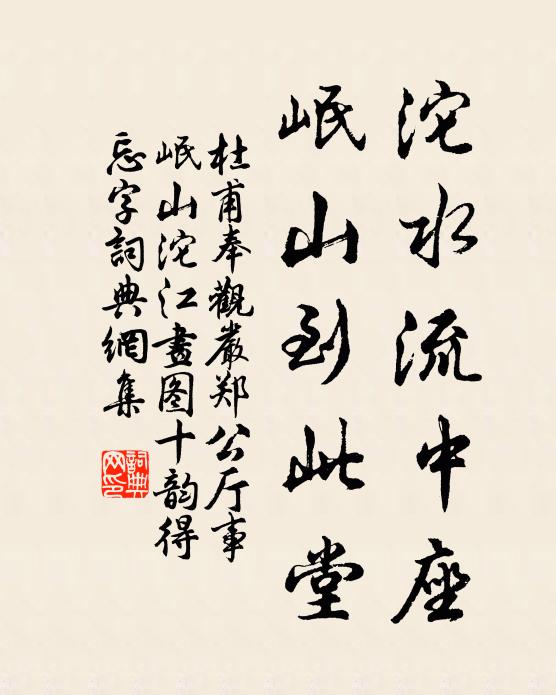 沱水流中座
岷山到此堂
杜甫奉觀嚴郑公厅事
岷山沱江畫图十韵得
忘字詞典網集
詞典
网印